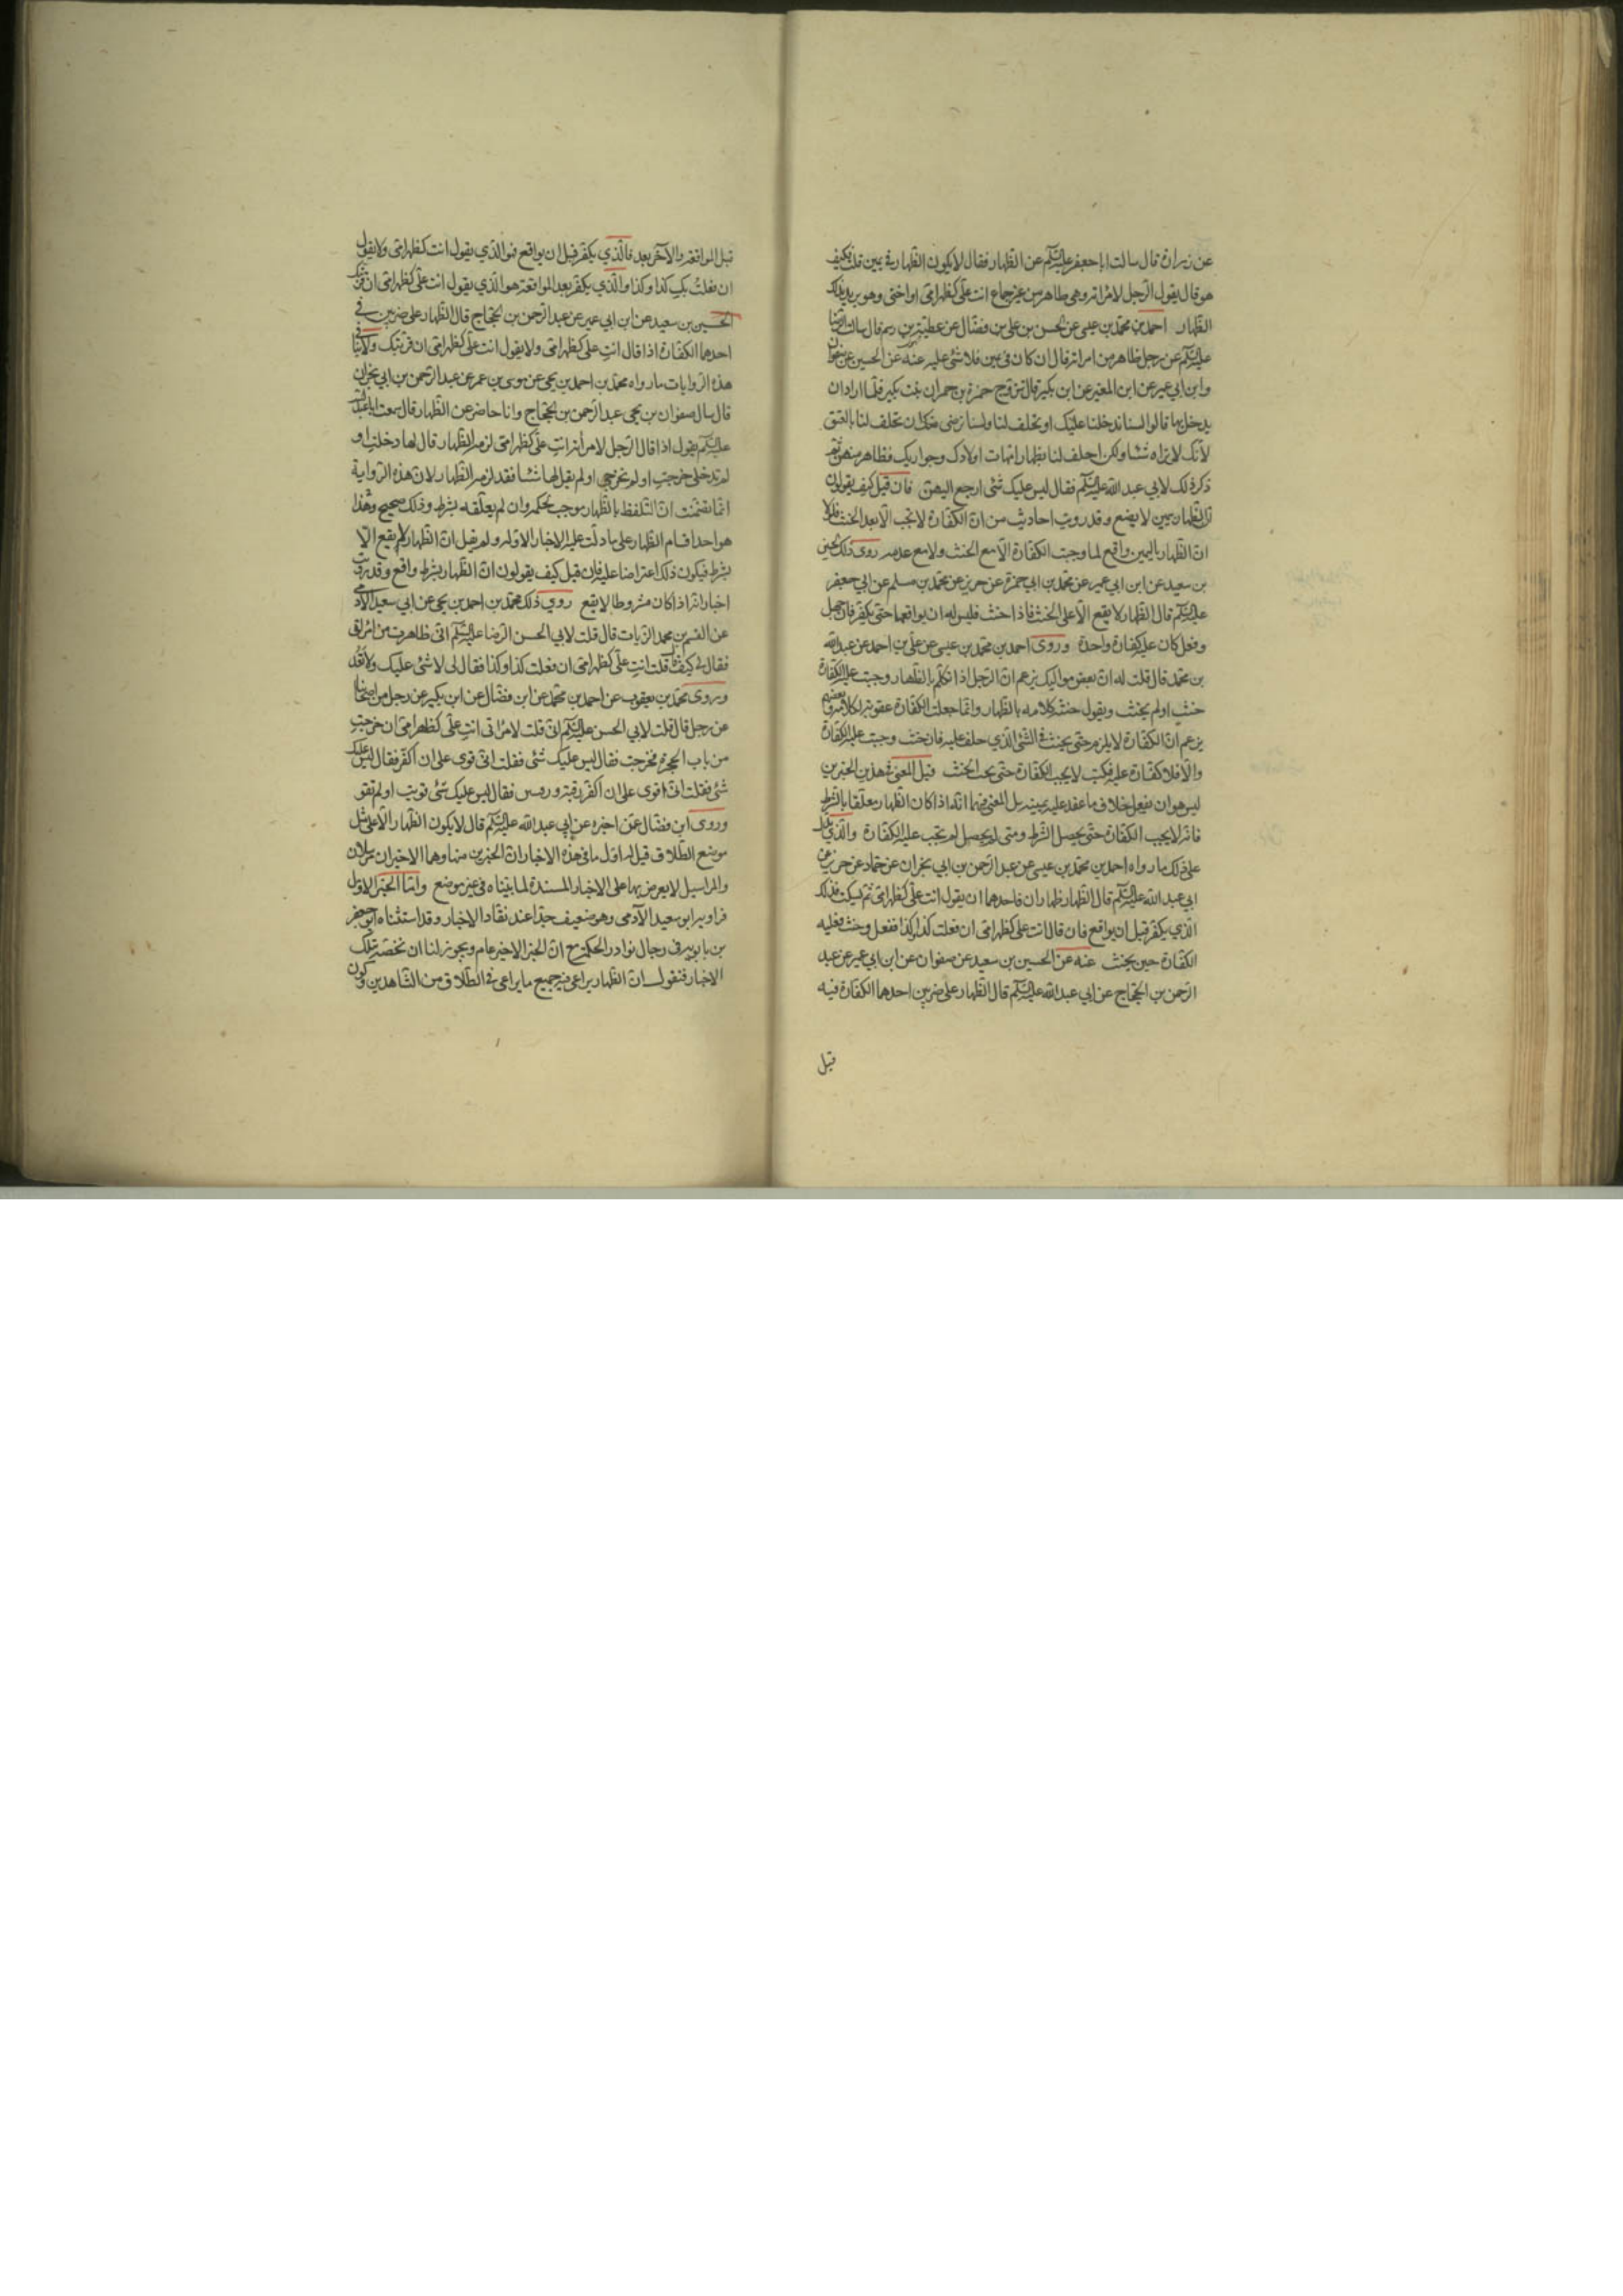 عن زرارة قال سالت ابا جعفر عليه السلم عن الظهار فقال لا يكون الظهار في يمين قلت فكيف
هو قال يقول الرجل لامراته وهي طاهر من غير جماع انت علي كظهر امي او اختي وهو يريد بذلك
الظهار احمد بن محمد بن عيسى عن الحسن بن علي بن فضال عن عطية بن رستم قال سالت الرضا
عليه السلم عن رجل ظاهر من امراته قال ان كان في يمين فلا شئ عليه عنه عن الحسين عن صفوان
وابن ابي عمير عن ابن المغيرة عن ابن بكير قال تزوج حمزة بن حمران بنت بكير فلما اراد ان
يدخل بها قالوا لسنا ندخلها عليك او تحلف لنا ولسنا نرضى منك ان تحلف لنا بالعتق
لانك لا تراه شيئا ولكن احلف لنا بظهار امهات اولادك وجواريك فظاهر منهن ثم
ذكر ذلك لابي عبد الله عليه السلم فقال ليس عليك شئ ارجع اليهن فان قيل كيف يقولون
ان الظهار بيمين لا يقع وقد رويت احاديث من ان الكفارة لا تجب الا بعد الحنث فلولا
ان الظهار باليمين واقع لما وجبت الكفارة الا مع الحنث ولا مع عدمه روى ذلك الحسين
بن سعيد عن ابن ابي عمير عن محمد بن ابي حمزة عن حريز عن محمد بن مسلم عن ابي جعفر
عليه السلم قال الظهار لا يقع الا على الحنث فاذا حنث فليس له ان يواقعها حتى يكفر فان جهل
وفعل كان عليه كفارة واحدة وروى احمد بن محمد بن عيسى عن علي بن احمد عن عبد الله
بن محمد قال قلت له ان بعض مواليك يزعم ان الرجل اذا تكلم بالظهار وجبت عليه الكفارة
حنث او لم يحنث ويقول حنثه كلامه بالظهار وانما جعلت الكفارة عقوبة لكلامه وبعضهم
يزعم ان الكفارة لا يلزمه حتى يحنث في الشئ الذي حلف عليه فان حنث وجبت عليه الكفارة
والا فلا كفارة عليه فكتب لا يجب الكفارة حتى يجب الحنث قيل المعنى في هذين الخبرين
ليس هو ان يفعل خلاف ما عقد عليه يمينه بل المعنى فيهما انه اذا كان الظهار معلقا بالشرط
فانه لا يجب الكفارة حتى يحصل الشرط ومتى لم يحصل لم يجب عليه الكفارة والذي يدل
على ذلك ما رواه احمد بن محمد بن عيسى عن عبد الرحمن بن ابي نجران عن حماد عن حريز عن
ابي عبد الله عليه السلم قال الظهار ظهاران فاحدهما ان يقول انت علي كظهر امي ثم يسكت فذلك
الذي يكفر قبل ان يواقع فان قال انت علي كظهر امي ان فعلت كذا وكذا ففعل وحنث فعليه
الكفارة حين يحنث عنه عن الحسين بن سعيد عن صفوان عن ابن ابي عمير عن عبد
الرحمن بن الحجاج عن ابي عبد الله عليه السلم قال الظهار على ضربين احدهما الكفارة فيه
قبل
قبل المواقعة والآخر بعد فالذي يكفر قبل ان يواقع فهو الذي يقول انت كظهر امي ولا يقول
ان فعلت بك كذا وكذا والذي يكفر بعد المواقعة هو الذي يقول انت علي كظهر امي ان قربتك
الحسين بن سعيد عن ابن ابي عمير عن عبد الرحمن بن الحجاج قال الظهار على ضربين في
احدهما الكفارة اذا قال انت علي كظهر امي ولا يقول انت علي كظهر امي ان قربتك ولا ينافي
هذه الروايات ما رواه محمد بن احمد بن يحيى عن موسى بن عمر عن عبد الرحمن بن ابي نجران
قال سال صفوان بن يحيى عبد الرحمن بن الحجاج وانا حاضر عن الظهار قال سمعت ابا عبد الله
عليه السلم يقول اذا قال الرجل لامراته انت علي كظهر امي لزمه الظهار قال لها دخلت او
لم تدخلي خرجت او لم تخرجي او لم يقل لها شيئا فقد لزمه الظهار لان هذه الرواية
انما تضمنت ان التلفظ بالظهار موجب لحكمه وان لم يعلقه بشرط وذلك صحيح وهذا
هو احد اقسام الظهار على ما دلت عليه الاخبار الاولة ولم يقل ان الظهار لا يقع الا
بشرط فيكون ذلك اعتراضا عليه فان قيل كيف يقولون ان الظهار بشرط واقع وقد رويت
اخبار انه اذا كان مشروطا لا يقع روى ذلك محمد بن احمد بن يحيى عن ابي سعيد الآدمي
عن القسم بن محمد الزيات قال قلت لابي الحسن الرضا عليه السلم اني ظاهرت من امراتي
فقال لي كيف قلت قلت انت علي كظهر امي ان فعلت كذا وكذا فقال لي لا شئ عليك ولا تعد
وروى محمد بن يعقوب عن احمد بن محمد عن ابن فضال عن ابن بكير عن رجل من اصحابنا
عن رجل قال قلت لابي الحسن عليه السلم اني قلت لامراتي انت علي كظهر امي ان خرجت
من باب الحجرة فخرجت فقال ليس عليك شئ فقلت اني قوي على ان اكفر فقال ليس عليك
شئ فقلت اني اقوى على ان اكفر رقبة ورقبتين فقال ليس عليك شئ قويت او لم تقو
وروى ابن فضال عمن اخبره عن ابي عبد الله عليه السلم قال لا يكون الظهار الا على مثل
موضع الطلاق قيل له اول ما في هذه الاخبار ان الخبرين منها وهما الاخيران مرسلان
والمراسيل لا يعترض بها على الاخبار المسندة لما بيناه في غير موضع واما الخبر الاول
فراويه ابو سعيد الآدمي وهو ضعيف جدا عند نقاد الاخبار وقد استثناه ابو جعفر
بن بابويه في رجال نوادر الحكمة مع ان الخبر الاخير عام ويجوز لنا ان نخصه بتلك
الاخبار فنقول ان الظهار يراعى فيه جميع ما يراعى في الطلاق من الشاهدين وكون